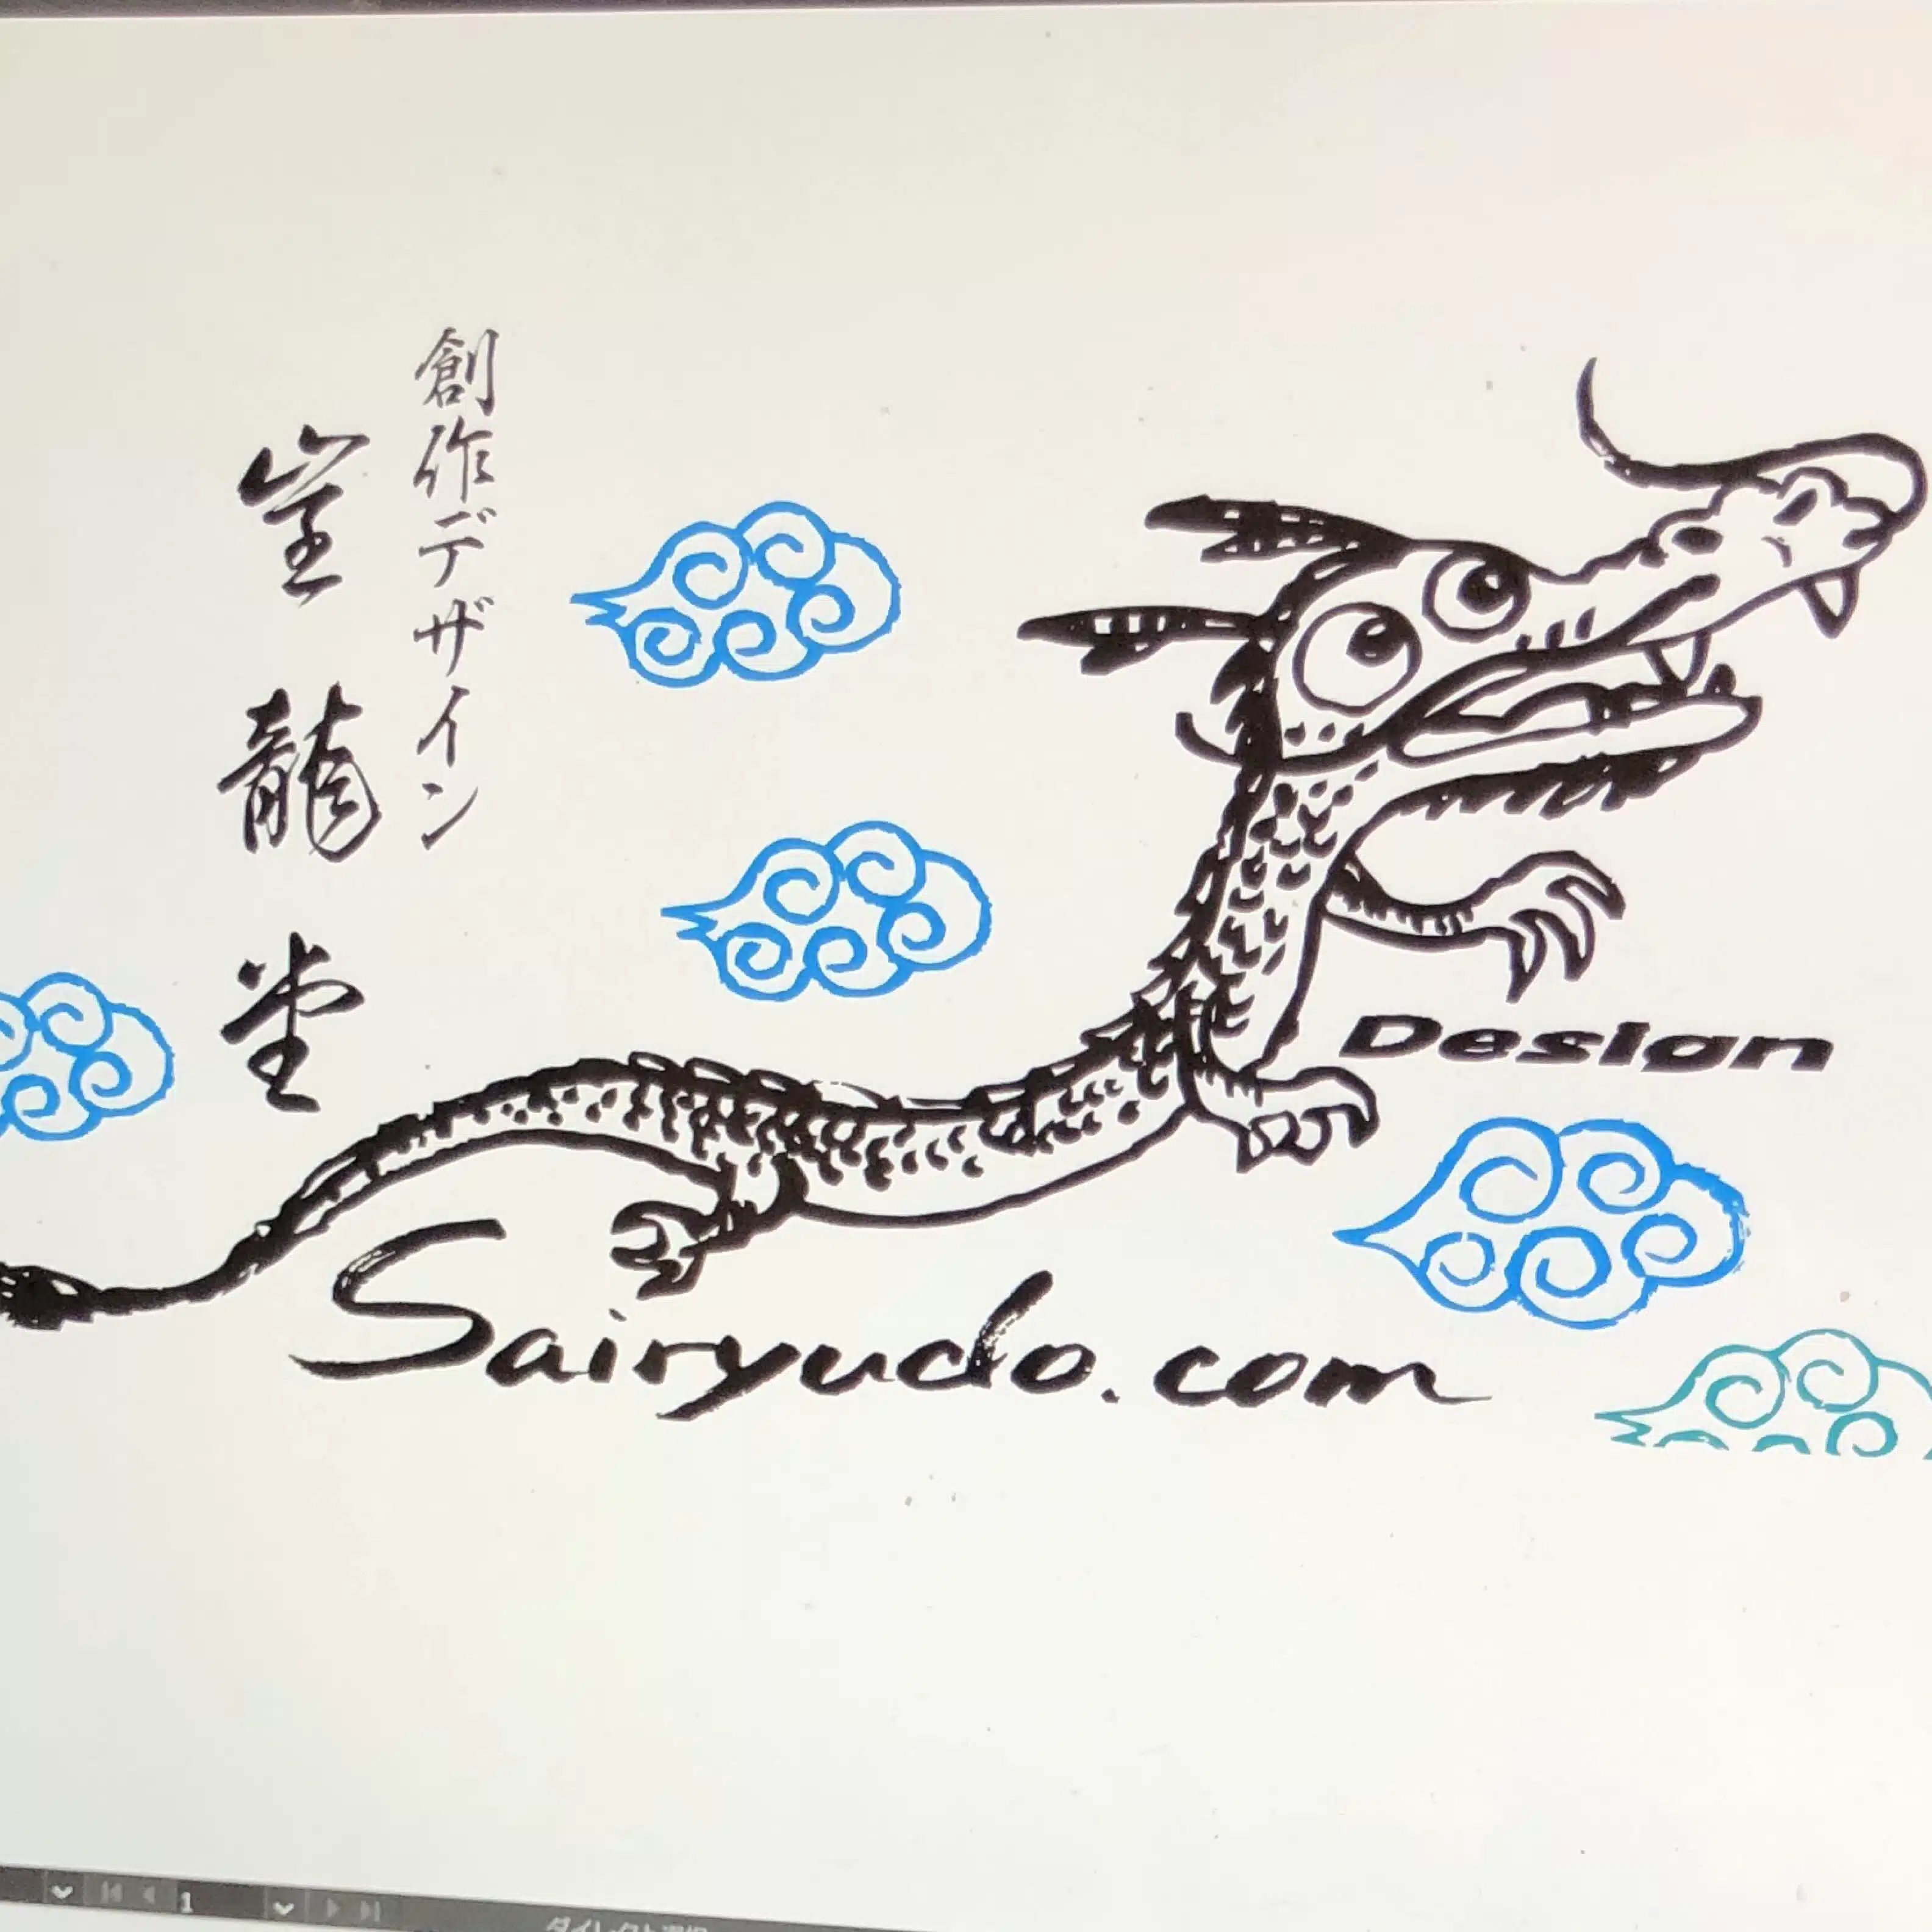 創作デザイン
龍堂
Design
Sairyudo.com
1
ダイレクト選択